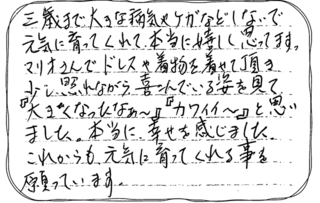 三歳まで大きな病気やケガなどしないで
元気に育ってくれて本当に嬉しく思ってます。
マリオさんでドレスや着物を着せて頂き
少し照れながら喜こんでいる姿を見て
『大きくなったなぁ〜』『カワイイ〜』と思い
ました。本当に幸せを感じました。
これからも、元気に育ってくれる事を
願っています。